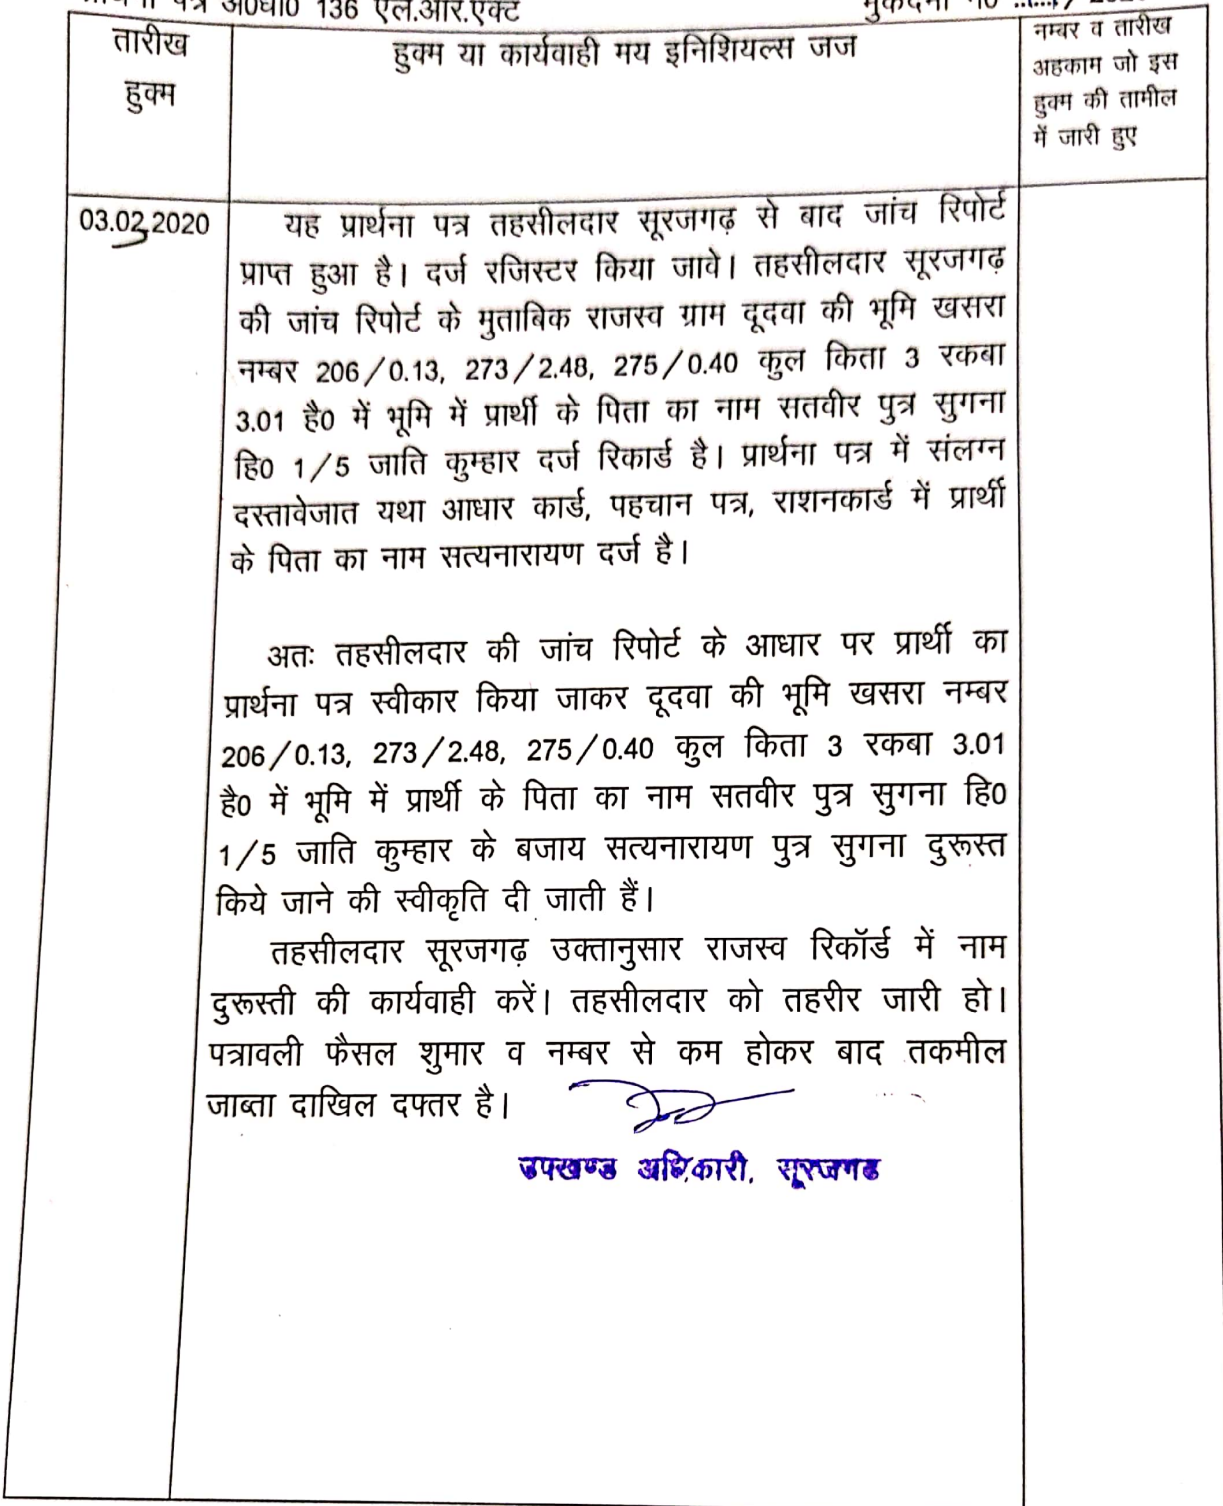 पत्र अ0धा0 136 एल.आर.एक्ट
तारीख
हुक्म
हुक्म या कार्यवाही मय इनिशियल्स जज
नम्बर व तारीख
अहकाम जो इस
हुक्म की तामील
में जारी हुए
03.02.2020
यह प्रार्थना पत्र तहसीलदार सूरजगढ़ से बाद जांच रिपोर्ट
प्राप्त हुआ है। दर्ज रजिस्टर किया जावे। तहसीलदार सूरजगढ़
की जांच रिपोर्ट के मुताबिक राजस्व ग्राम दूदवा की भूमि खसरा
नम्बर 206/0.13, 273/2.48, 275/0.40 कुल किता 3 रकबा
3.01 है0 में भूमि में प्रार्थी के पिता का नाम सतवीर पुत्र सुगना
हि0 1/5 जाति कुम्हार दर्ज रिकार्ड है। प्रार्थना पत्र में संलग्न
दस्तावेजात यथा आधार कार्ड, पहचान पत्र, राशनकार्ड में प्रार्थी
के पिता का नाम सत्यनारायण दर्ज है।
अतः तहसीलदार की जांच रिपोर्ट के आधार पर प्रार्थी का
प्रार्थना पत्र स्वीकार किया जाकर दूदवा की भूमि खसरा नम्बर
206/0.13, 273/2.48, 275/0.40 कुल किता 3 रकबा 3.01
है0 में भूमि में प्रार्थी के पिता का नाम सतवीर पुत्र सुगना हि0
1/5 जाति कुम्हार के बजाय सत्यनारायण पुत्र सुगना दुरूस्त
किये जाने की स्वीकृति दी जाती हैं।
तहसीलदार सूरजगढ़ उक्तानुसार राजस्व रिकॉर्ड में नाम
दुरूस्ती की कार्यवाही करें। तहसीलदार को तहरीर जारी हो।
पत्रावली फैसल शुमार व नम्बर से कम होकर बाद तकमील
जाब्ता दाखिल दफ्तर है।
उपखण्ड अधिकारी, सूरजगढ